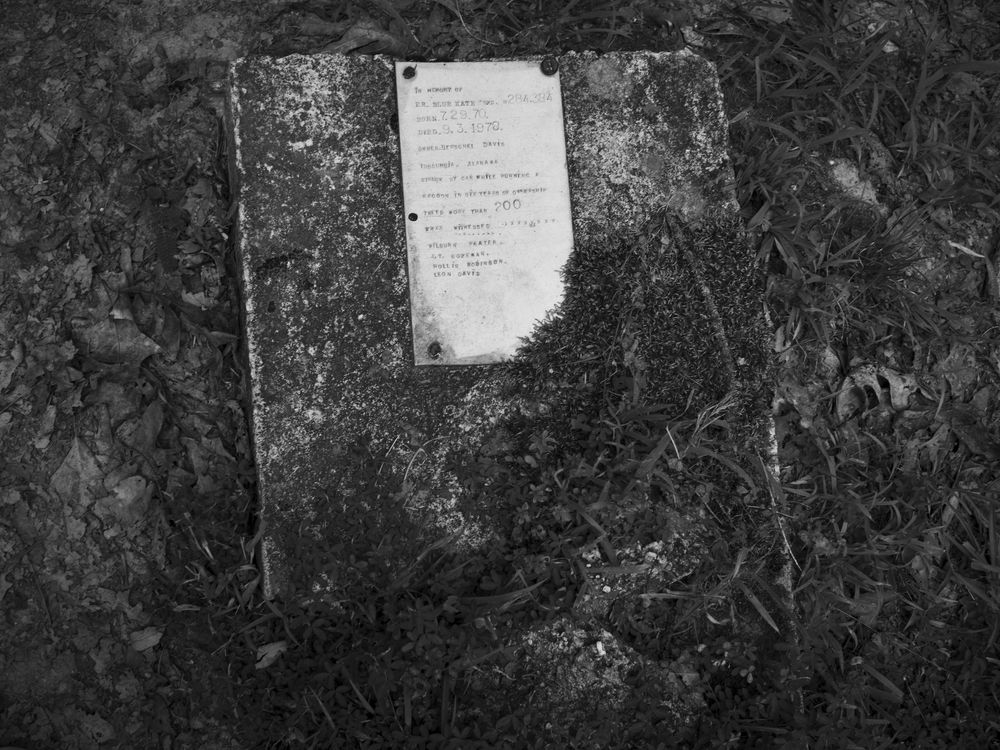 IN MEMORY OF
BLUE KATE 284384
BORN. 7.29.70.
DIED. 9.3.1978.
OWNER. DAVIS
TUSCUMBIA, ALABAMA
STRUCK BY CAR WHILE RUNNING A
RACOON IN SIX YEARS OF OWNERSHIP
TREED MORE THAN 200
WITNESSED
WILBURN PRATER.
HOLLIS ROBINSON.
LEON DAVIS